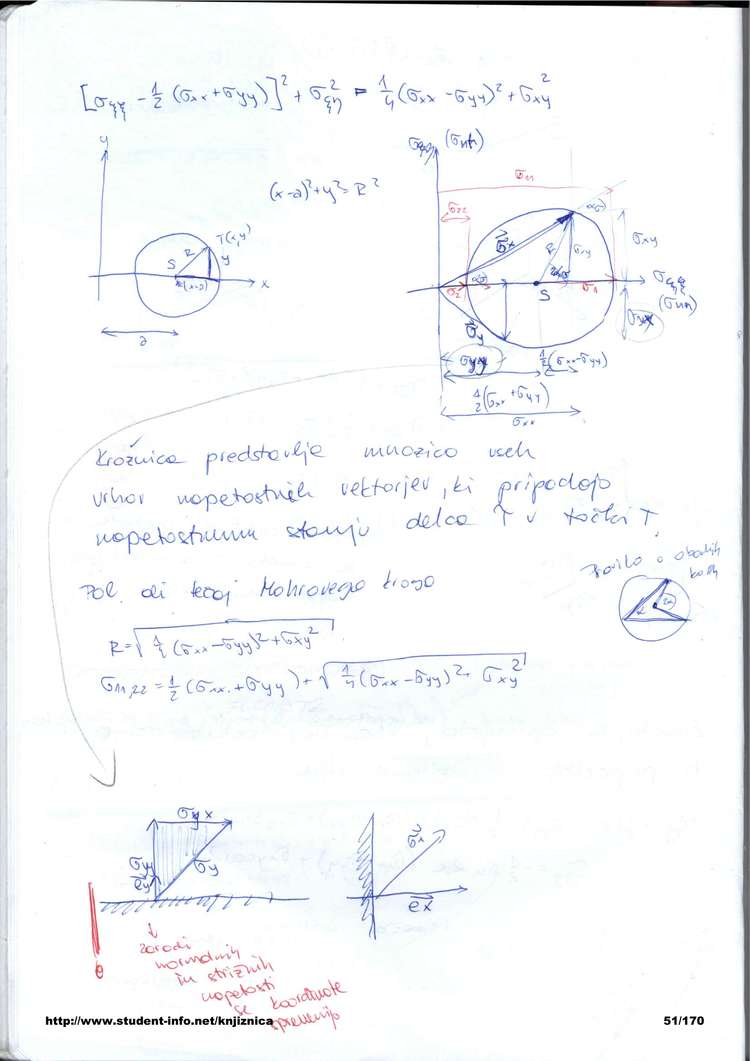 [σξξ - 1/2 (σxx + σyy)]² + σ²ξη = 1/4 (σxx - σyy)² + σxy²
y
(x-a)² + y² = R²
T(x,y)
R
y
S
(x-a)
x
a
(σnt)
σ11
σ22
σx
R
σxy
σxy
σ2
S
σ1
σξξ
(σnn)
σy
σyy
1/2 (σxx - σyy)
1/2 (σxx + σyy)
σxx
Krožnica predstavlja množico vseh
vrhov napetostnih vektorjev, ki pripadajo
napetostnemu stanju delca T v točki T.
Pravilo o obodnih
kotih
α
2α
Pol. ali tečaj Mohrovega kroga
R = √ 1/4 (σxx - σyy)² + σxy²
σ11,22 = 1/2 (σxx + σyy) + √ 1/4 (σxx - σyy)² + σxy²
σyx
σyy
ey
σy
σx
ex
e
zaradi
normalnih
in strižnih
napetosti
se koordinate
spremenijo
http://www.student-info.net/knjiznica
51/170